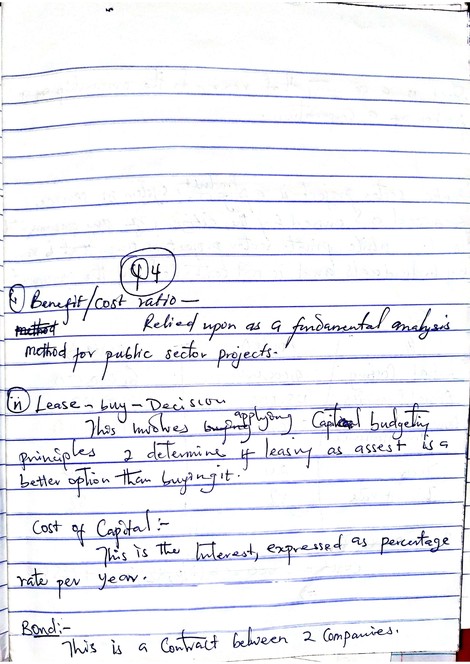 Q4
i) Benefit/cost ratio –
method Relied upon as a fundamental analysis
method for public sector projects.
ii) Lease – buy – Decision
This Involves applying Capital budgeting
principles 2 determine if leasing as assest is a
better option than buying it.
Cost of Capital:-
This is the Interest, expressed as percentage
rate per year.
Bond:-
This is a Contract between 2 Companies.